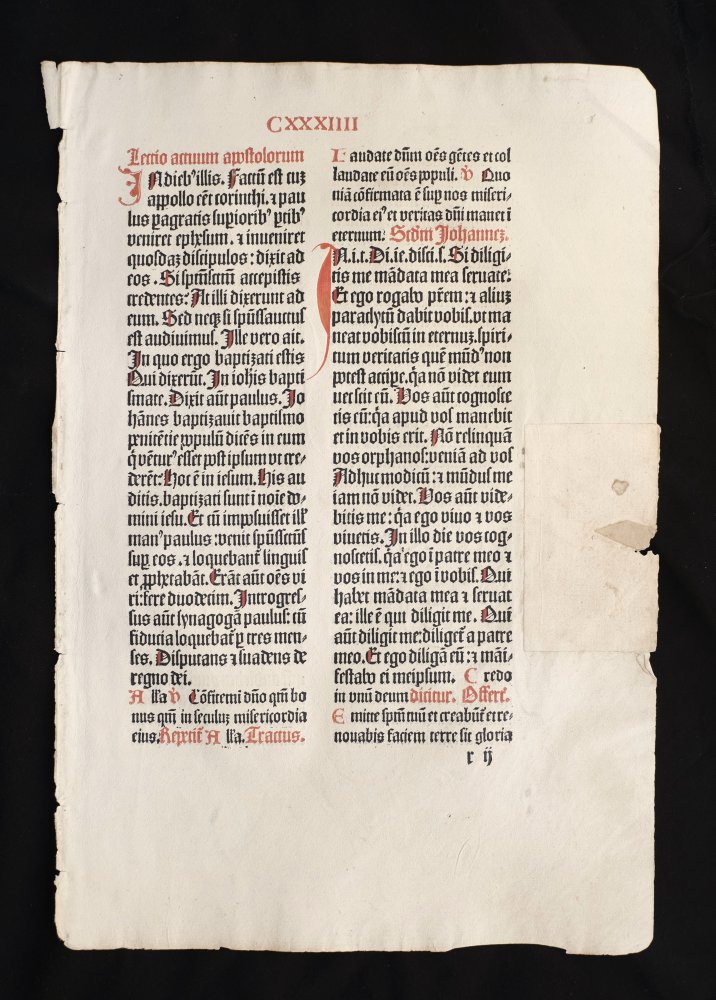 CXXXIIII
Lectio actuum apostolorum
IN dieb⁹ illis. Factū est cuꝫ
appollo eēt corinthi. ⁊ pau
lus ꝑagratis suꝑiorib⁹ ꝑtib⁹
veniret ephesum. ⁊ inueniret
quosdaꝫ discipulos : dixit ad
eos. Si spm̄sctm̄ accepistis
credentes: At illi dixerunt ad
eum. Sed neqꝫ si spūssanctus
est audiuimus. Ille vero ait.
In quo ergo baptizati estis
Qui dixerūt. In iohis bapti
smate. Dixit aūt paulus. Jo
hānes baptizauit baptismo
penitētie ppulū dicēs in eum
q̄ vētur⁹ esset post ipsum vt cre-
derēt: Hoc ē in iesum. His au
ditis. baptizati sunt ī noīe do-
mini iesu. Et cū imposuisset ill'
man⁹ paulus : venit spūssctūs
suꝑ eos. ⁊ loquebant̄ linguis
et ꝓphetabāt. Erāt aūt oēs vi
ri: fere duodecim. Introgres-
sus aūt synagogā paulus: cū
fiducia loquebat̄ ꝑ tres men-
ses. Disputans ⁊ suadens de
regno dei.
A lla V Cōfitemi dn̄o qm̄ bo
nus qm̄ in seculuꝫ misericordia
eius. Repetit̄ A lla. Tractus.
L audate dn̄m oēs gētes et col
laudate eū oēs populi. V Quo
niā cōfirmata ē suꝑ nos miseri-
cordia ei⁹ et veritas dn̄i manet ī
eternum: Scdm̄ Johannez.
IN.i.t. Di.ie. disci.s. Si diligi-
tis me mādata mea seruate:
Et ego rogabo prēm: ⁊ aliuꝫ
paraclytū dabit vobis. vt ma
neat vobiscū in eternuꝫ. spiri-
tum veritatis quē mūd⁹ non
potest accipe. q̄a nō videt eum
nec scit eū. Vos aūt cognosce
tis eū: q̄a apud vos manebit
et in vobis erit. Nō relinquā
vos orphanos: veniā ad vos
Adhuc modicū: ⁊ mūdus me
iam nō videt. Vos aūt vide-
bitis me : q̄a ego viuo ⁊ vos
viuetis. In illo die vos cog-
noscetis. q̄a ego ī patre meo ⁊
vos in me: ⁊ ego ī vobis. Qui
habet mādata mea ⁊ seruat
ea: ille ē qui diligit me. Qui
aūt diligit me: diliget̄ a patre
meo. Et ego diligā eū: ⁊ māi-
festabo ei meipsum. C redo
in vnū deum dicitur. Offert̄.
E mitte spm̄ tuū et creabūt̄ et re-
nouabis faciem terre sit gloria
r ij